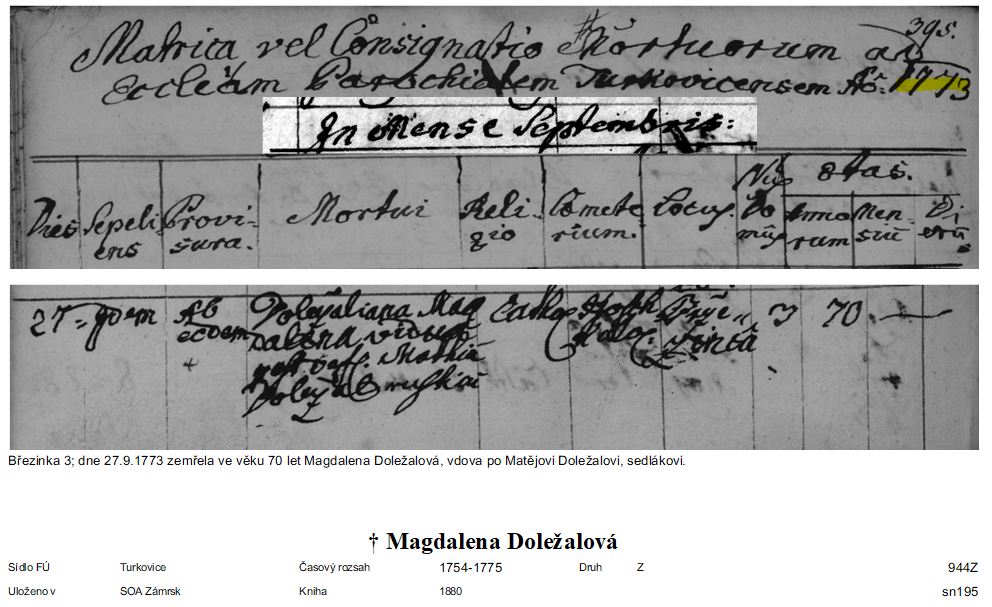 395.
Matrica vel Consignatio Mortuorum ad
Eccleām Parochialem Turkovicensem Aō. 1773
In Mense Septembris:
Dies Sepeliens Provisura. Mortui Religio Cœmeterium. Locus. Nūs Domūs ætas. Annorum Mensiū Dierū
27 Idem Ab eodem
Magdalena vidua
post def. Mathiā
Cath. 3 70
Březinka 3; dne 27.9.1773 zemřela ve věku 70 let Magdalena Doležalová, vdova po Matějovi Doležalovi, sedlákovi.
† Magdalena Doležalová
Sídlo FÚ Turkovice Časový rozsah 1754-1775 Druh Z 944Z
Uloženo v SOA Zámrsk Kniha 1880 sn195